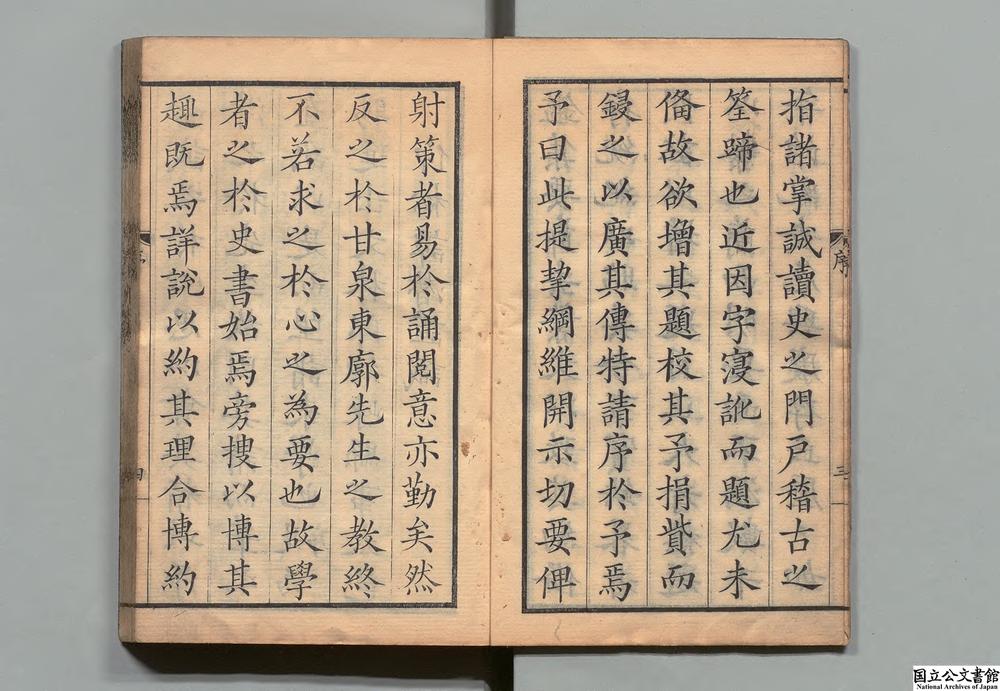 指諸掌誠讀史之門戶稽古之
筌蹄也近因字寖訛而題尤未
俻故欲增其題校其予捐貲而
鋟之以廣其傳特請序扵予焉
予曰此提挈綱維開示切要俾
序
三
射策者易扵誦閱意亦勤矣然
反之扵甘泉東廓先生之教終
不若求之扵心之為要也故學
者之扵史書始焉旁搜以博其
趣既焉詳說以約其理合博約
四
国立公文書館
National Archives of Japan